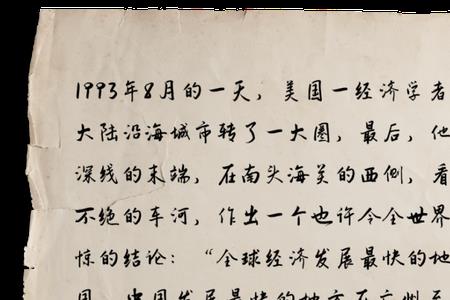 1993年8月的一天，美国一经济学者
大陆沿海城市转了一大圈，最后，他
深线的末端，在南头海关的西侧，看
不绝的车河，作出一个也许令全世界
惊的结论：“全球经济发展最快的地
中国发展最快的地方